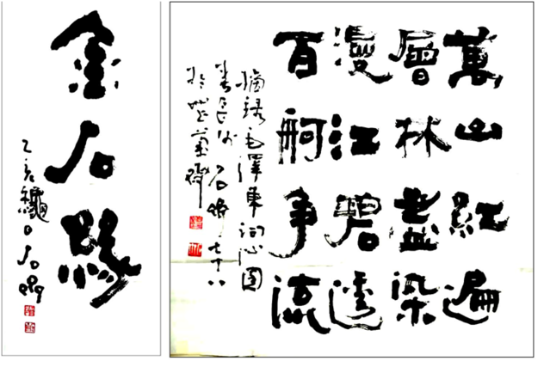 金石緣
乙亥龝日石
萬山紅遍
層林盡染
漫江碧透
百舸争流
摘録毛澤東詞沁園
春長沙石七十八
於齋